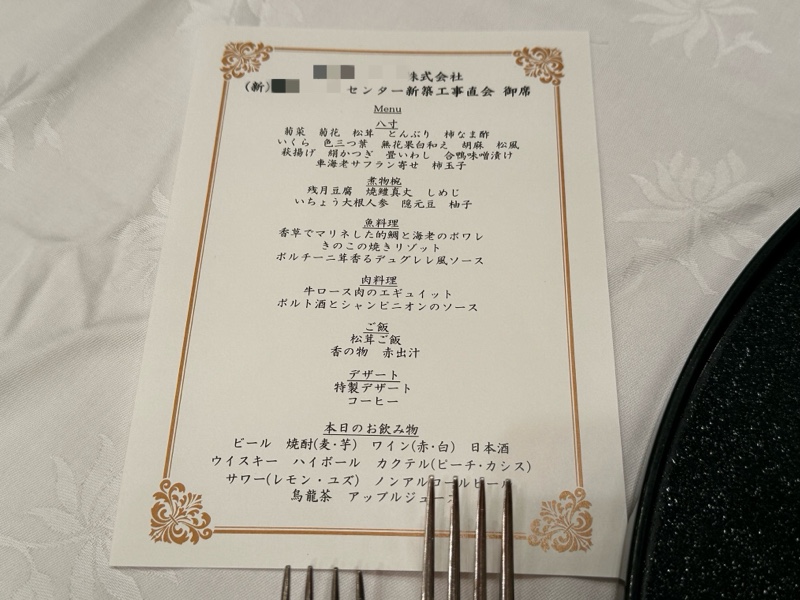 株式会社
(新) センター新築工事直会 御席
Menu
八寸
菊菜 菊花 松茸 とんぶり 柿なま酢
いくら 色三つ葉 無花果白和え 胡麻 松風
萩揚げ 絹かつぎ 畳いわし 合鴨味噌漬け
車海老サフラン寄せ 柿玉子
煮物椀
残月豆腐 焼鱧真丈 しめじ
いちょう大根人参 隠元豆 柚子
魚料理
香草でマリネした的鯛と海老のポワレ
きのこの焼きリゾット
ポルチーニ茸香るデュグレレ風ソース
肉料理
牛ロース肉のエギュイット
ポルト酒とシャンピニオンのソース
ご飯
松茸ご飯
香の物 赤出汁
デザート
特製デザート
コーヒー
本日のお飲み物
ビール 焼酎(麦・芋) ワイン(赤・白) 日本酒
ウイスキー ハイボール カクテル(ピーチ・カシス)
サワー(レモン・ユズ) ノンアルコールビール
烏龍茶 アップルジュース